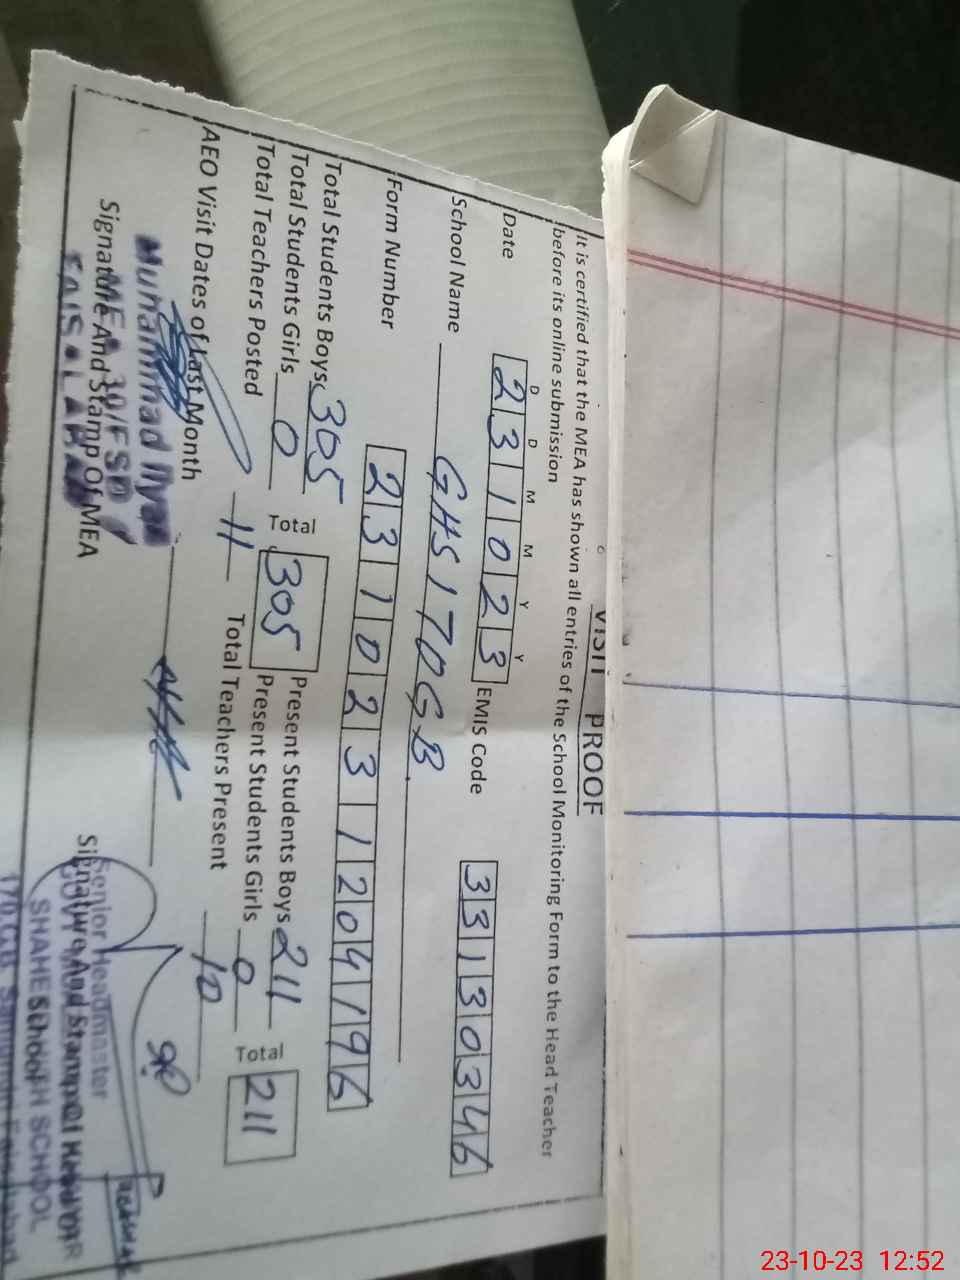 VISIT PROOF
It is certified that the MEA has shown all entries of the School Monitoring Form to the Head Teacher
before its online submission
D D M M Y Y
Date 231023 EMIS Code 33130346
School Name GHS 170 GB
Form Number 2310231204196
Total Students Boys 305 Total 305 Present Students Boys 211 Total 211
Total Students Girls 0 Present Students Girls 0
Total Teachers Posted 11 Total Teachers Present 10
AEO Visit Dates of Last Month
Muhammad Ilyas
MEA 30/FSD
Signature And Stamp Of MEA
Senior Headmaster
Signature And Stamp Of
School
SCHOOL
170 G.B.
23-10-23 12:52